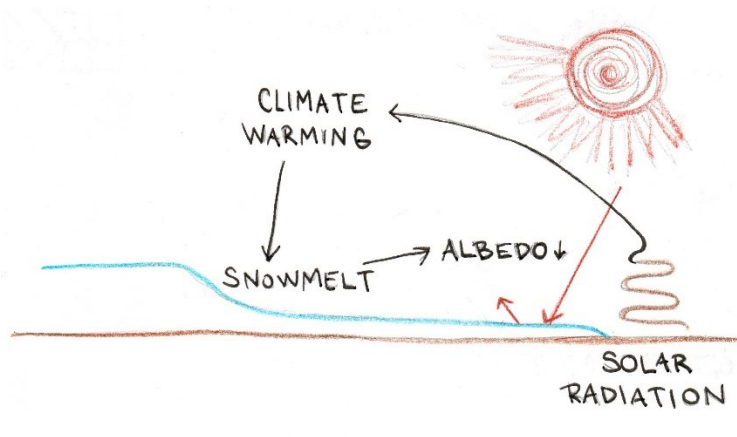 CLIMATE
WARMING
SNOWMELT
ALBEDO↓
SOLAR
RADIATION